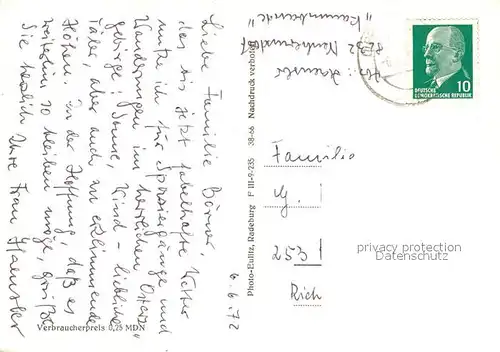 Liebe Familie Börner,
das bis jetzt fabelhafte Wetter
nutze ich für Spaziergänge und
Wanderungen im herrlichen Osterz
gebirge! Sonne, Wind - liebliche
Täler, aber auch zu erklimmende
Höhen. In der Hoffnung, daß es
weiterhin so bleiben möge, grüßt
Sie herzlich Ihre Frau
6.6.72
Verbraucherpreis 0,25 MDN
Photo-Eulitz, Radeburg F III-9-235 38-66 Nachdruck verboten
8232
DEUTSCHE
DEMOKRATISCHE REPUBLIK
10
Familie
G.
253
privacy protection
Datenschutz